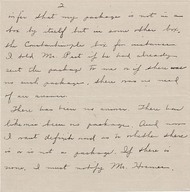 2
infer that my package is not in a
box by itself but in some other box,
the Constantinople box for instance.
I told Mr. Peet if he had already
sent the package to me or if there was
no such package, there was no need
of an answer.
There has been no answer. There has
likewise been no package. And now
I want definite word as to whether there
is or is not a package. If there is
none, I must notify Mr.